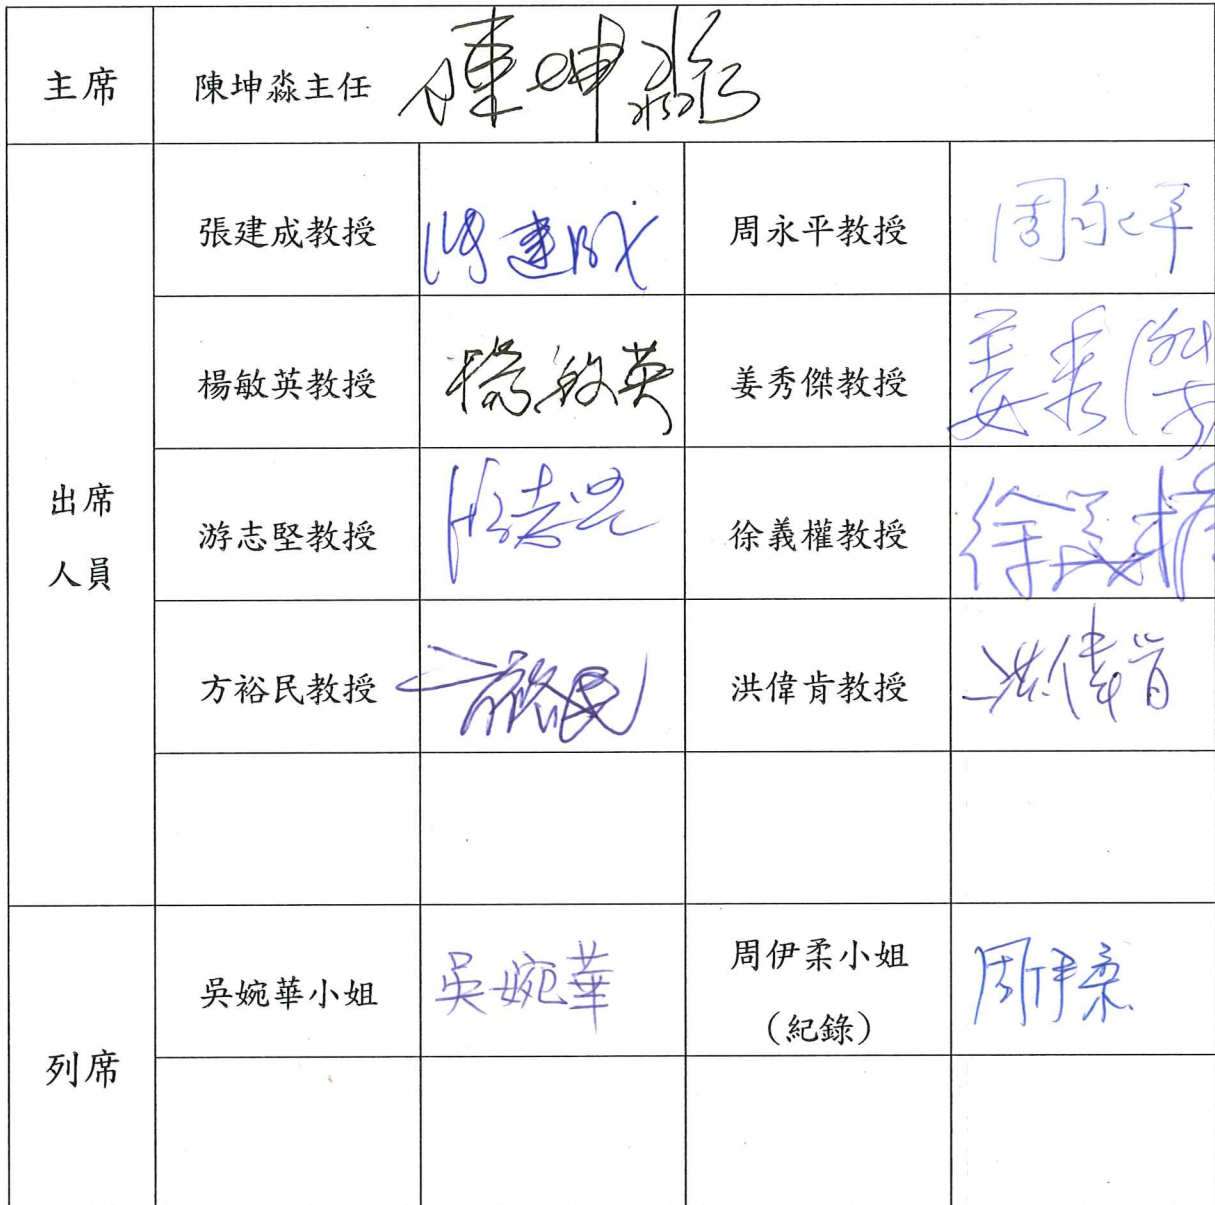 主席
陳坤淼主任
陳坤淼
出席
人員
張建成教授
張建成
周永平教授
周永平
楊敏英教授
楊敏英
姜秀傑教授
姜秀傑
游志堅教授
游志堅
徐義權教授
徐義權
方裕民教授
方裕民
洪偉肯教授
洪偉肯
列席
吳婉華小姐
吳婉華
周伊柔小姐
（紀錄）
周伊柔